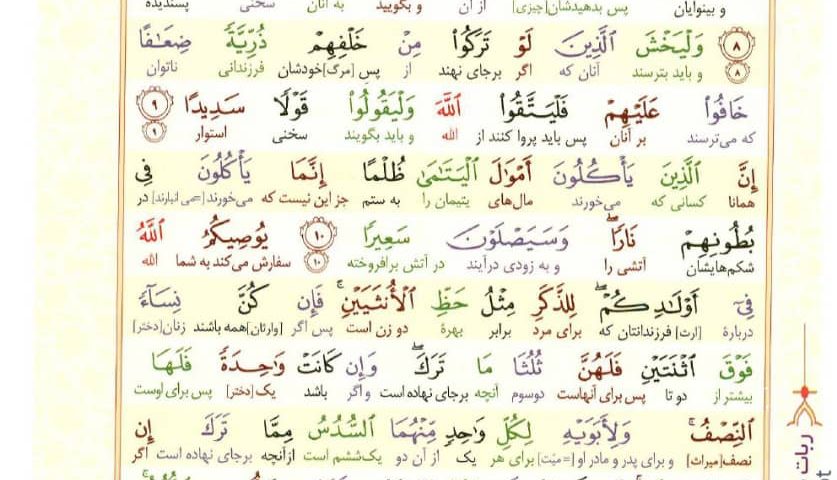 و بینوایان پس بدهیدشان[چیزی] از آن و بگویید به آنان سخنی پسندیده
۸ وَلْيَخْشَ ٱلَّذِينَ لَوْ تَرَكُوا۟ مِنْ خَلْفِهِمْ ذُرِّيَّةً ضِعَـٰفًا
۸ و باید بترسند آنان که اگر برجای نهند از پس [مرگ]خودشان فرزندانی ناتوان
خَافُوا۟ عَلَيْهِمْ فَلْيَتَّقُوا۟ ٱللَّهَ وَلْيَقُولُوا۟ قَوْلًا سَدِيدًا ۹
که می‌ترسند بر آنان پس باید پروا کنند از الله و باید بگویند سخنی استوار ۹
إِنَّ ٱلَّذِينَ يَأْكُلُونَ أَمْوَٰلَ ٱلْيَتَـٰمَىٰ ظُلْمًا إِنَّمَا يَأْكُلُونَ فِى
همانا کسانی که می‌خورند مال‌های یتیمان را به ستم جز این نیست که می‌خورند[=می انبارند] در
بُطُونِهِمْ نَارًا ۖ وَسَيَصْلَوْنَ سَعِيرًا ۱۰ يُوصِيكُمُ ٱللَّهُ
شکم‌هایشان آتشی را و به زودی درآیند در آتش برافروخته ۱۰ سفارش می‌کند به شما الله
فِىٓ أَوْلَـٰدِكُمْ ۖ لِلذَّكَرِ مِثْلُ حَظِّ ٱلْأُنثَيَيْنِ ۚ فَإِن كُنَّ نِسَآءً
دربارهٔ [ارث] فرزندانتان که برای مرد برابر بهرهٔ دو زن است پس اگر [وارثان]همه باشند زنان[دختر]
فَوْقَ ٱثْنَتَيْنِ فَلَهُنَّ ثُلُثَا مَا تَرَكَ ۖ وَإِن كَانَتْ وَٰحِدَةً فَلَهَا
بیشتر از دو تا پس برای آنهاست دوسوم آنچه برجای نهاده است و اگر باشد یک[دختر] پس برای اوست
ٱلنِّصْفُ ۚ وَلِأَبَوَيْهِ لِكُلِّ وَٰحِدٍ مِّنْهُمَا ٱلسُّدُسُ مِمَّا تَرَكَ إِن
نصف[میراث] و برای پدر و مادر او[=میّت] برای هر یک از آن دو یک‌ششم است ازآنچه برجای نهاده است اگر
ربات